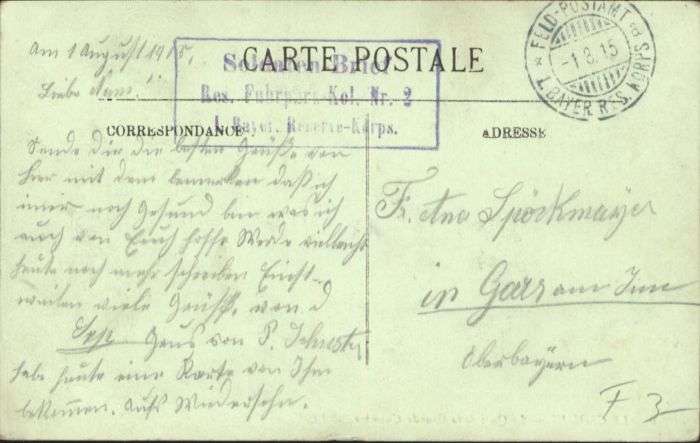 CARTE POSTALE
CORRESPONDANCE
ADRESSE
Soldaten-Brief
Res. Fuhrpark-Kol. Nr. 2
I. Bayer. Reserve-Korps.
FELD-POSTAMT
-1.8.15
I. BAYER. RES. KORPS.
Am 1 August 1915.
Liebe
Sende dir die besten Grüße von
hier mit dem bemerken daß ich
imer noch Gesund bin was ich
auch von Euch hoffe Werde vielleicht
heute noch mehr schreiben Einst-
weilen viele Grüße von d
Sepp
habe heute eine Karte von Ihm
bekommen. Aufs Wiedersehn.
Fr. Ana Spörkmayer
in Gars am Inn
Oberbayern
F 3